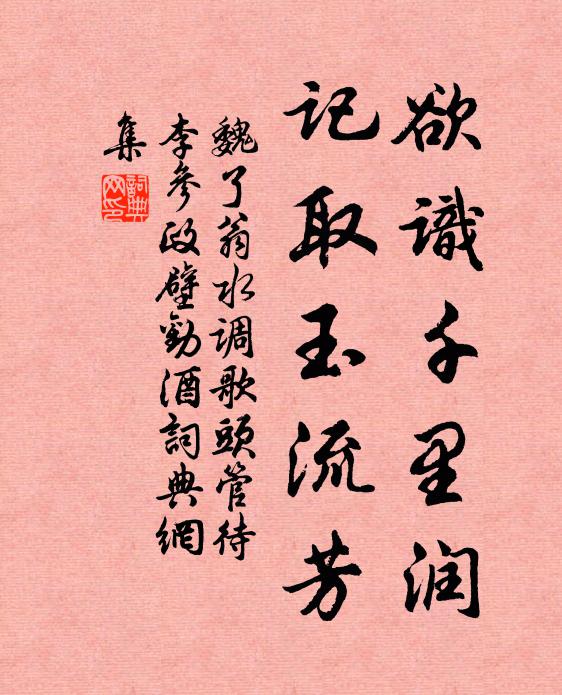 欲識千里润
记取玉流芳
魏了翁水调歌頭管待
李參政壁勸酒詞典網
集
詞典
网印